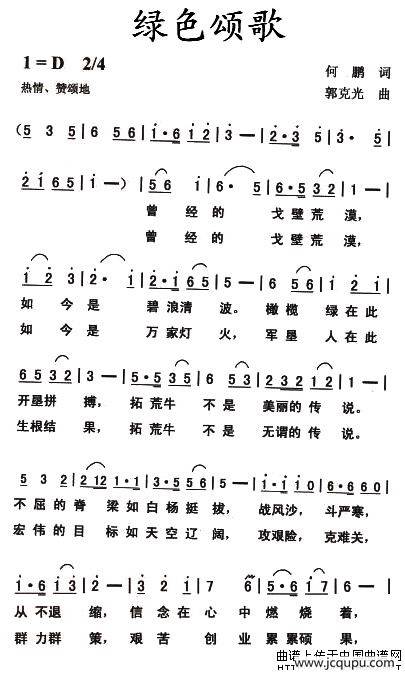 绿色颂歌
1=D 2/4
何 鹏 词
热情、赞颂地
郭克光 曲
(5 3 5 | 6 5 6 | 1·6 1 2 | 3 — | 2·3 5 | 3· 5 |
2 1 6 5 | 1 — ) | 5 6 1 | 6· 5 | 6·5 3 2 | 3 — |
曾 经 的 戈 壁 荒 漠,
曾 经 的 戈 壁 荒 漠,
1 2 3 | 2· 1 | 2 1 6 5 | 6 — | 6 5 6 | 1 2 1 |
如 今 是 碧 浪 清 波。 橄 榄 绿 在 此
如 今 是 万 家 灯 火, 军 垦 人 在 此
6 5 3 2 | 3 — | 5·3 5 6 | 1 6 5 | 2 3 2 2 | 1 — |
开 垦 拼 搏, 拓 荒 牛 不 是 美丽的 传 说。
生 根 结 果, 拓 荒 牛 不 是 无谓的 传 说。
5 3 2 | 2 1 2 1·1 | 3·5 5 3 5 | 6 — | 1·1 1 | 6·6 6 0 |
不 屈 的 脊 梁 如 白 杨 挺 拔, 战风沙, 斗严寒,
宏 伟 的 目 标 如 天 空 辽 阔, 攻艰险, 克难关,
1·6 1 3 | 2 — | 3·2 2 | 1 7 6 | 5·6 7 | 6 — |
从 不退 缩, 信 念 在 心 中 燃 烧 着,
群 力 群 策, 艰 苦 创 业 累 累 硕 果,
曲谱上传于中国曲谱网
www.jcqupu.com